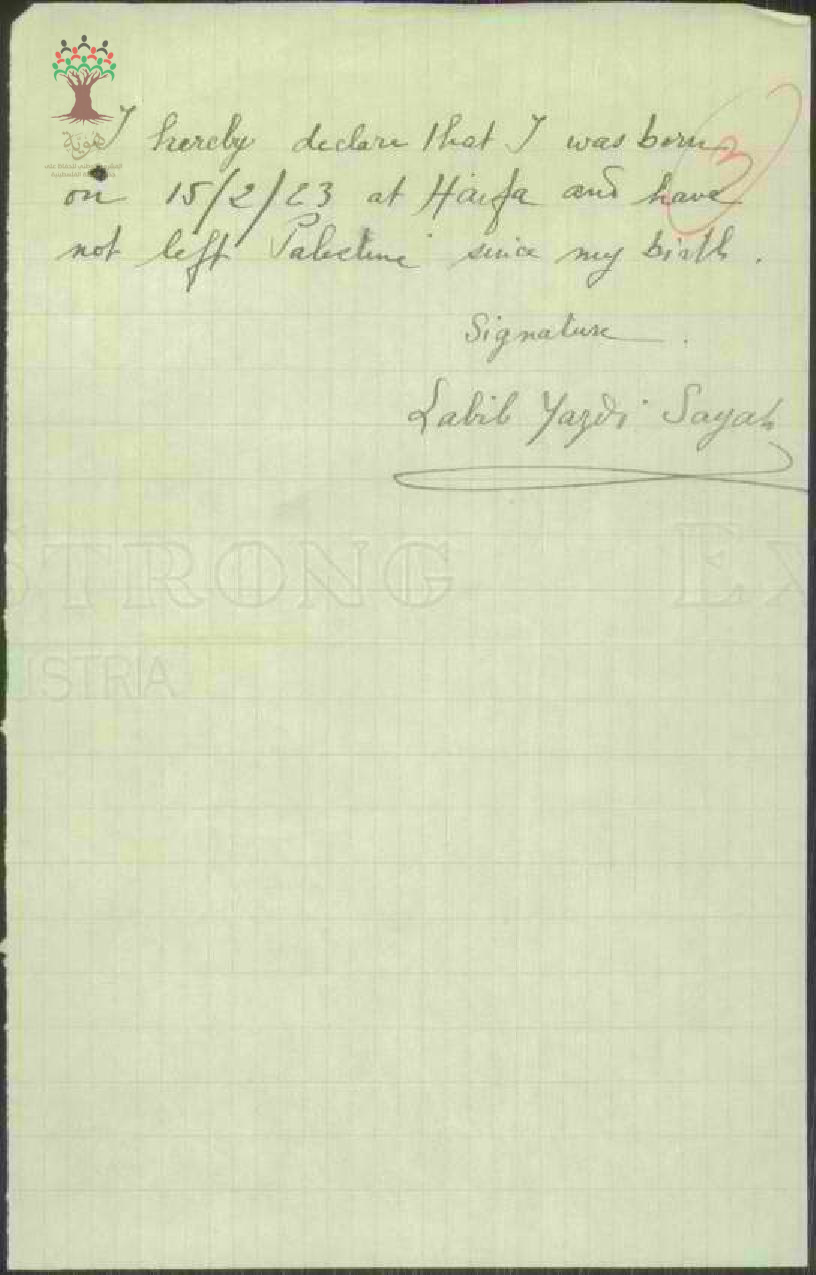 هوية
3
I hereby declare that I was born
on 15/2/23 at Haifa and have
not left Palestine since my birth.
Signature.
Labib Yazdi Sayah
STRONG EX
USTRIA